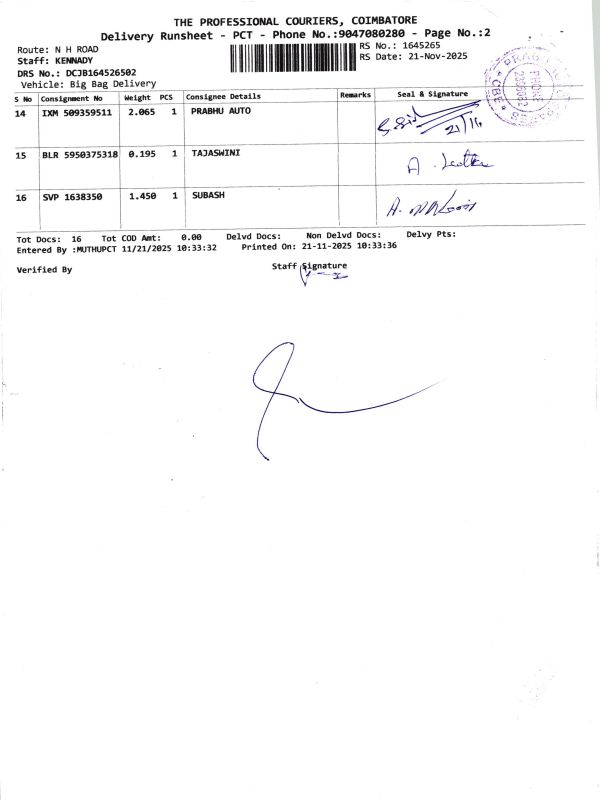 THE PROFESSIONAL COURIERS, COIMBATORE
Delivery Runsheet - PCT - Phone No.:9047080280 - Page No.:2
Route: N H ROAD
RS No.: 1645265
Staff: KENNADY
RS Date: 21-Nov-2025
DRS No.: DCJB164526502
Vehicle: Big Bag Delivery
S No Consignment No Weight PCS Consignee Details Remarks Seal & Signature
14 IXM 509359511 2.065 1 PRABHU AUTO
15 BLR 5950375318 0.195 1 TAJASWINI
16 SVP 1638350 1.450 1 SUBASH
Tot Docs: 16 Tot COD Amt: 0.00 Delvd Docs: Non Delvd Docs: Delvy Pts:
Entered By :MUTHUPCT 11/21/2025 10:33:32 Printed On: 21-11-2025 10:33:36
Verified By
Staff Signature